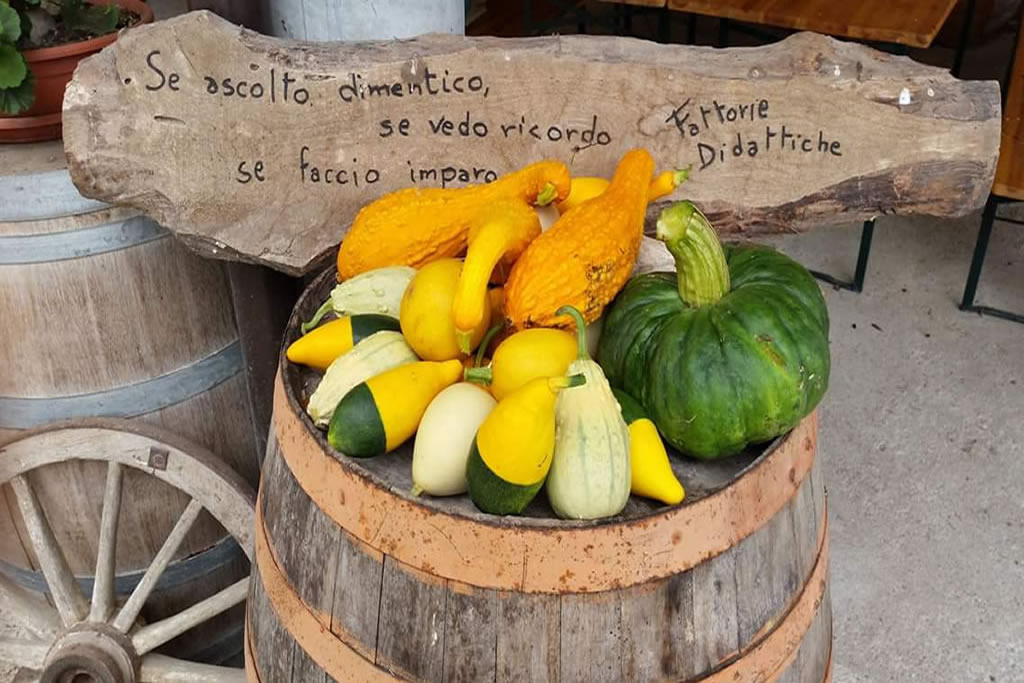 Se ascolto dimentico,
se vedo ricordo
se faccio imparo
Fattorie
Didattiche